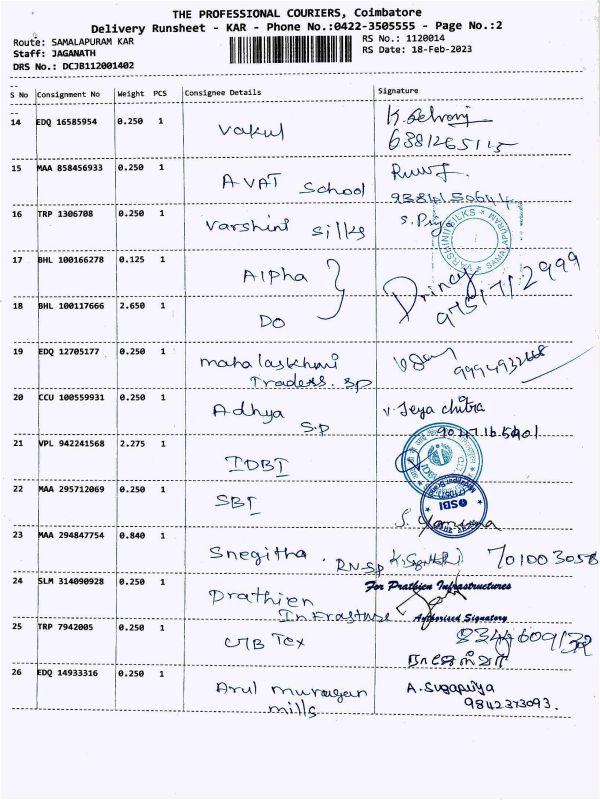 THE PROFESSIONAL COURIERS, Coimbatore
Delivery Runsheet - KAR - Phone No.:0422-3505555 - Page No.:2
Route: SAMALAPURAM KAR
RS No.: 1120014
Staff: JAGANATH
RS Date: 18-Feb-2023
DRS No.: DCJB112001402
S No Consignment No Weight PCS Consignee Details Signature
14 EDQ 16585954 0.250 1 Vakul
15 MAA 858456933 0.250 1 AVAT School
16 TRP 1306708 0.250 1 Varshini Silks
VARSHINI SILKS SAMALAPURAM
17 BHL 100166278 0.125 1 Alpha
18 BHL 100117666 2.650 1 Do
19 EDQ 12705177 0.250 1
Traders. SP
20 CCU 100559931 0.250 1 Adhya V. Jeya chitra
S.P
21 VPL 942241568 2.275 1 IDBI
22 MAA 295712069 0.250 1 SBI
SBI
23 MAA 294847754 0.840 1 Snegitha. RNSP
701003058
24 SLM 314090928 0.250 1 Prathien
For Prathien Infrastructures
Authorised Signatory
25 TRP 7942005 0.250 1 Tex
26 EDQ 14933316 0.250 1 Arul murugan A. Sugapriya
mills 9842373093.